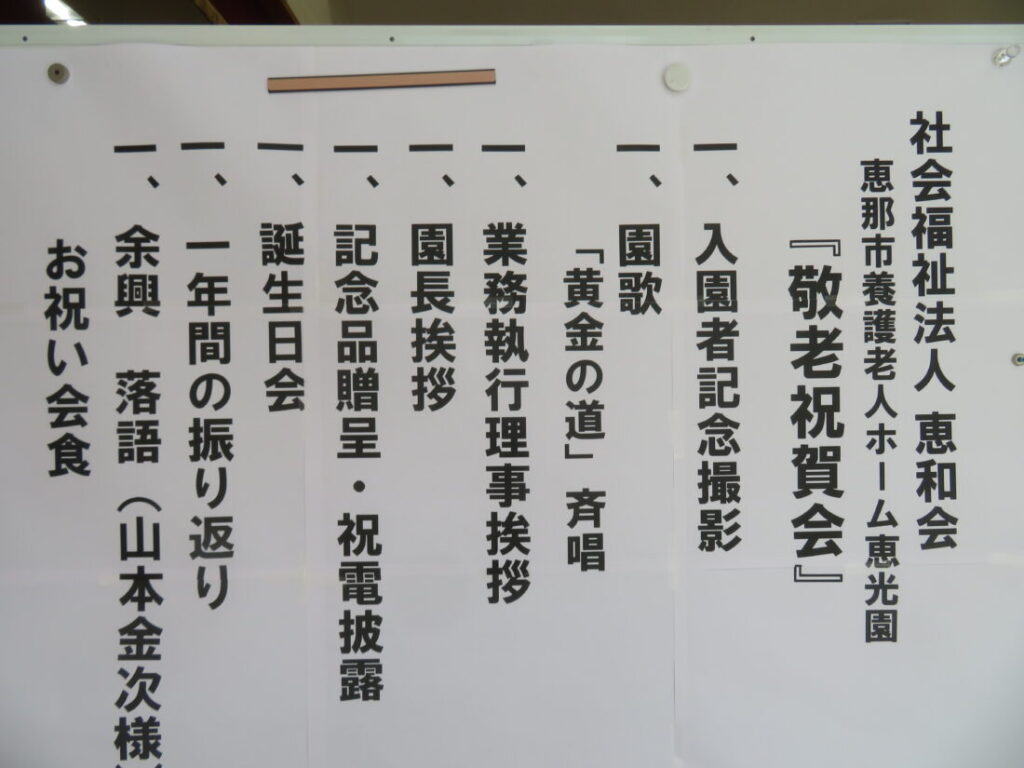 社会福祉法人 恵和会
恵那市養護老人ホーム恵光園
『敬老祝賀会』
一、入園者記念撮影
一、園歌
「黄金の道」斉唱
一、業務執行理事挨拶
一、園長挨拶
一、記念品贈呈・祝電披露
一、誕生日会
一、一年間の振り返り
一、余興 落語（山本金次様）
お祝い会食